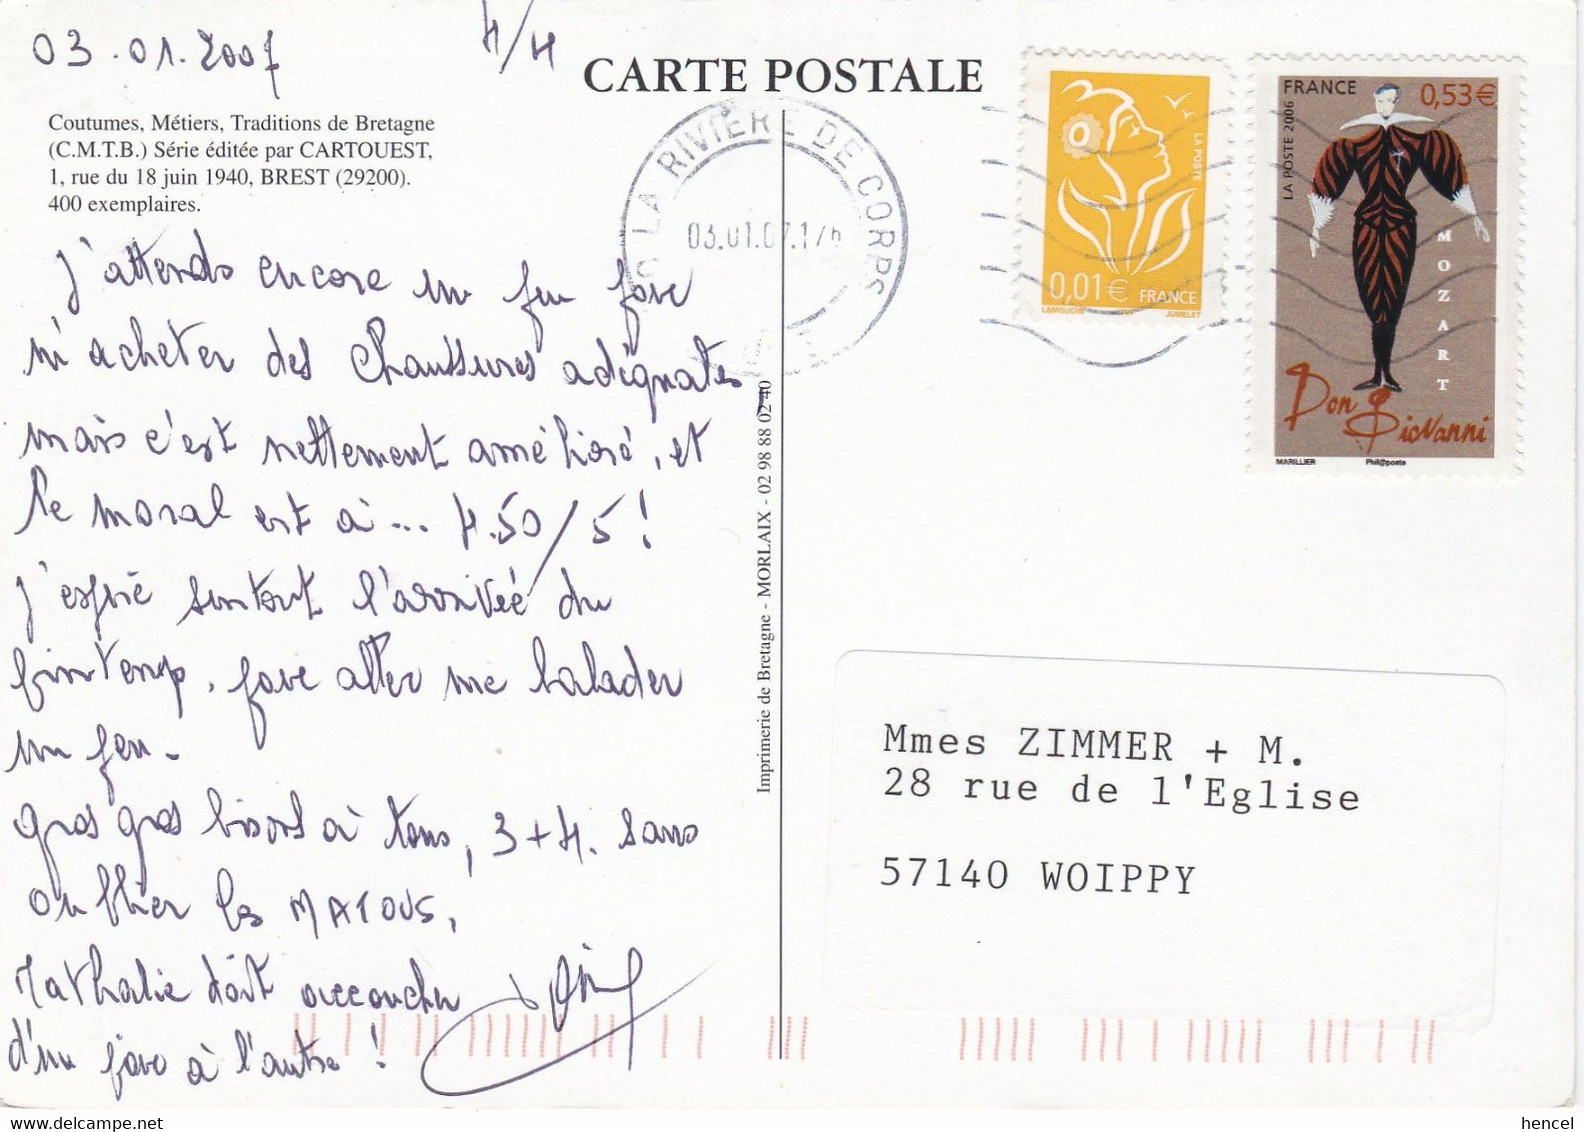 03.01.2007
4/4
CARTE POSTALE
Coutumes, Métiers, Traditions de Bretagne
(C.M.T.B.) Série éditée par CARTOUEST,
1, rue du 18 juin 1940, BREST (29200).
400 exemplaires.
j'attends encore un peu pour
m'acheter des chaussures adéquates,
mais c'est nettement amélioré, et
le moral est à ... 4.50/5!
j'espère surtout l'arrivée du
printemps, pour aller me balader
un peu -
gros gros bisous à tous, 3+4. sans
oublier les MATOUS,
Nathalie doit accoucher
d'un jour à l'autre!
Imprimerie de Bretagne - MORLAIX - 02 98 88 02 40
LA RIVIERE DE CORPS
03.01.07.17h
0,01€ FRANCE
LA POSTE
LAMOUCHE
JUMELET
FRANCE 0,53€
LA POSTE 2006
MOZART
Don Giovanni
MARILLIER Phil@poste
Mmes ZIMMER + M.
28 rue de l'Eglise
57140 WOIPPY
hencel